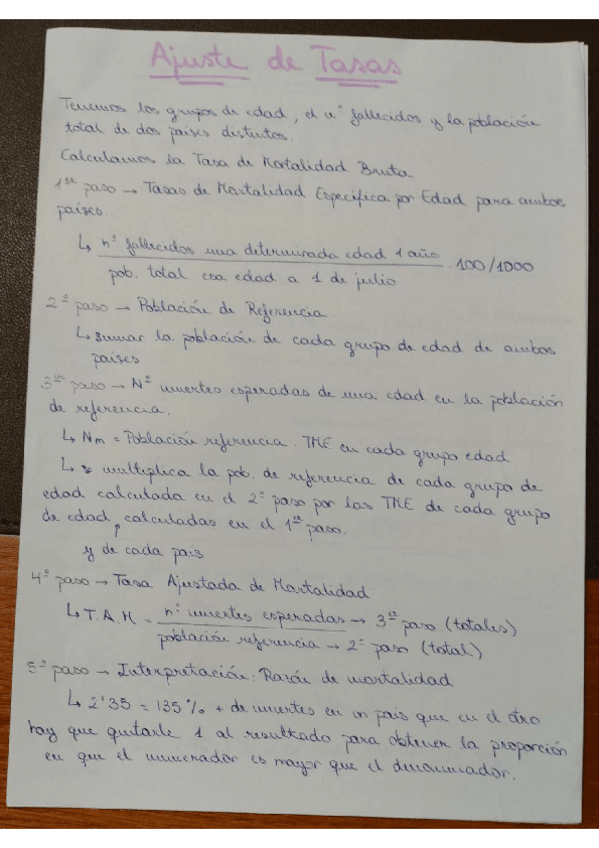 Ajuste de Tasas
Tenemos los grupos de edad, el nº fallecidos y la población
total de dos países distintos.
Calculamos la Tasa de Mortalidad Bruta.
1er paso → Tasas de Mortalidad Específica por Edad para ambos
países.
↳ nº fallecidos una determinada edad 1 año / pob. total con edad a 1 de julio · 100/1000
2º paso → Población de Referencia.
↳ sumar la población de cada grupo de edad de ambos
países
3er paso → Nº muertes esperadas de una edad en la población
de referencia.
↳ Nm = Población referencia · TME en cada grupo edad
↳ se multiplica la pob. de referencia de cada grupo de
edad calculada en el 2º paso por las TME de cada grupo
de edad, calculadas en el 1er paso.
y de cada país
4º paso → Tasa Ajustada de Mortalidad
↳ T.A.M = nº muertes esperadas → 3er paso (totales)
población referencia → 2º paso (total)
5º paso → Interpretación: Razón de mortalidad
↳ 2'35 = 135% + de muertes en un país que en el otro
hay que quitarle 1 al resultado para obtener la proporción
en que el numerador es mayor que el denominador.